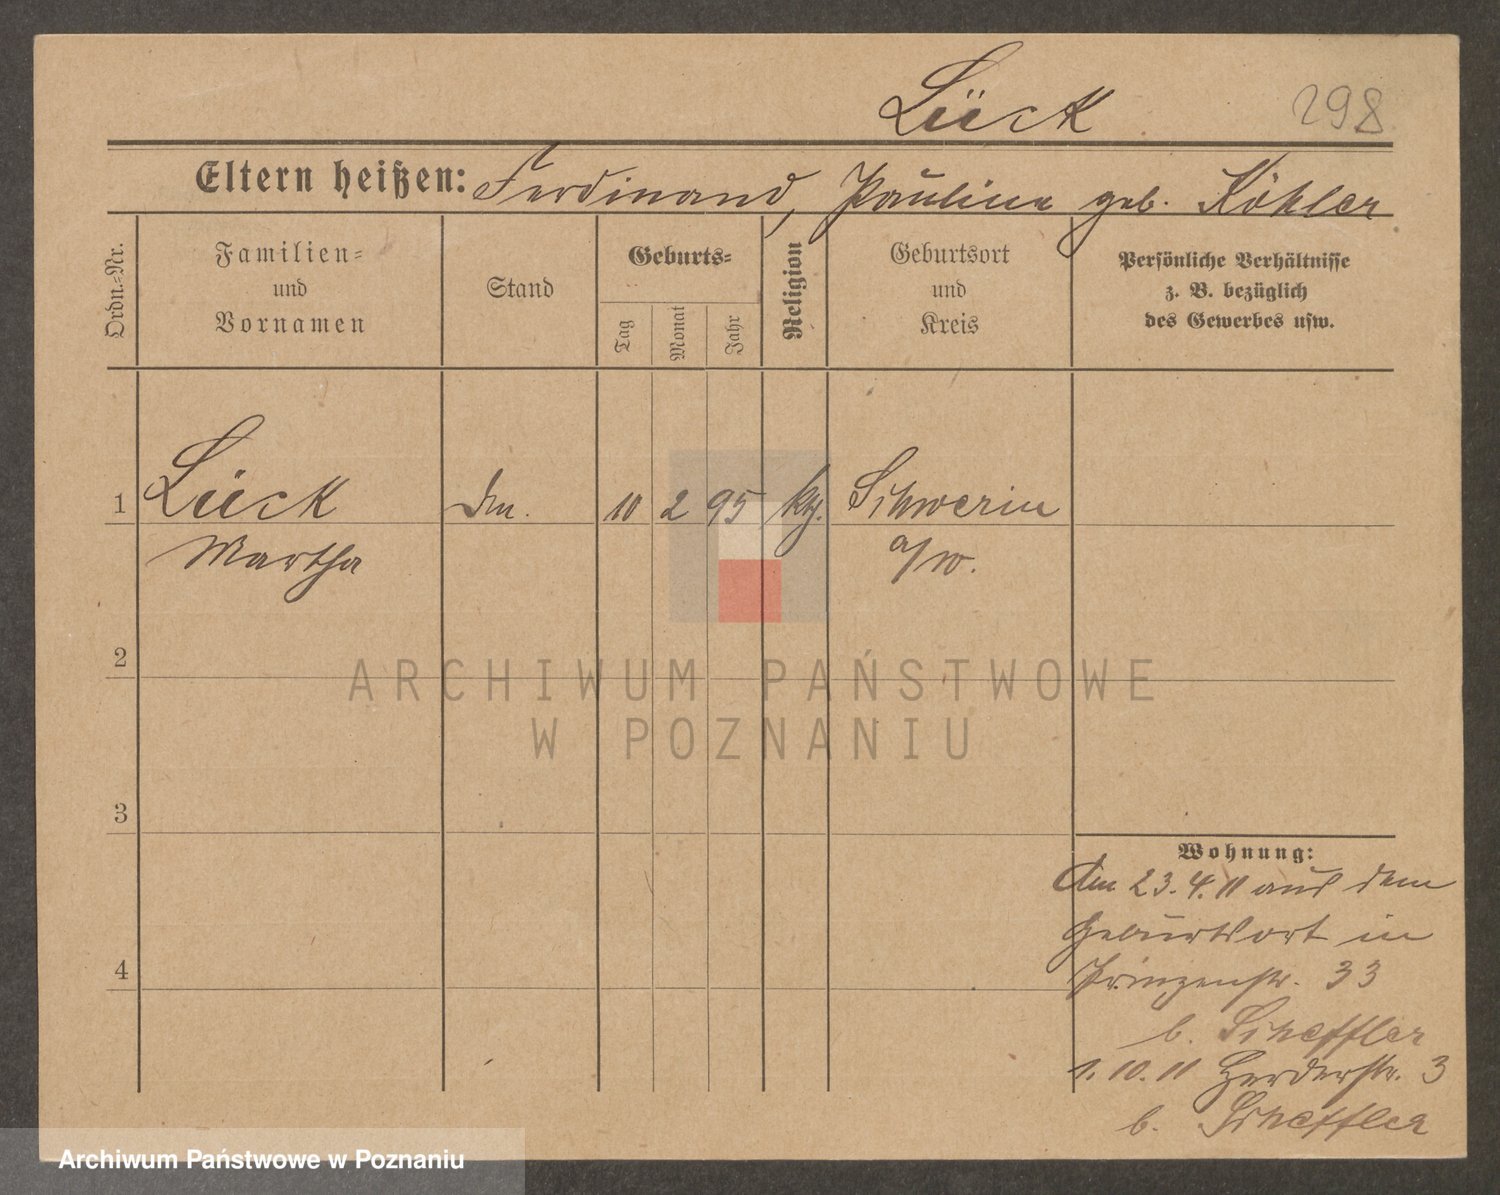 Lück 298
Eltern heißen: Ferdinand, Pauline geb. Köhler
Ordn.-Nr.
Familien-
und
Vornamen
Stand
Geburts-
Tag
Monat
Jahr
Religion
Geburtsort
und
Kreis
Persönliche Verhältnisse
z. B. bezüglich
des Gewerbes usw.
1 Lück 10 2 95 Schwerin
Martha a/W.
2
3
4
ARCHIWUM PAŃSTWOWE
W POZNANIU
Wohnung:
Am 23.4.11 aus dem
Geburtsort in
Prinzenstr. 33
b. Scheffler
1.10.11 Herderstr. 3
b. Scheffler
Archiwum Państwowe w Poznaniu